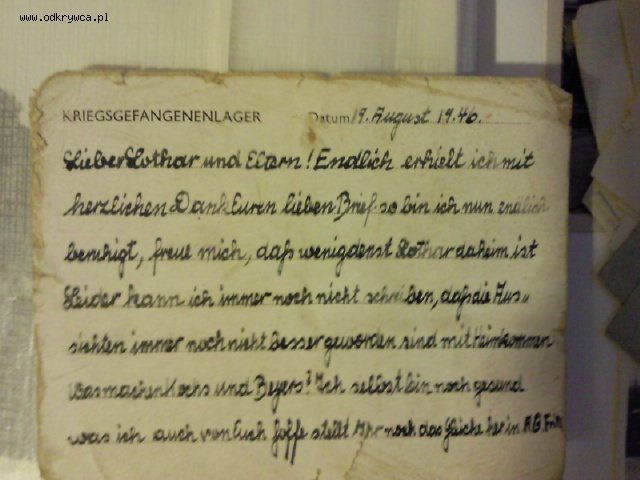 www.odkrywca.pl
KRIEGSGEFANGENENLAGER Datum 19. August 1946.
Lieber Lothar und Eltern! Endlich erhielt ich mit
herzlichen Dank Euren lieben Brief so bin ich nun endlich
beruhigt, freue mich, daß wenigdenst Lothar daheim ist
Leider kann ich immer noch nicht schreiben, daß die Aus=
sichten immer noch nicht besser geworden sind mit Heimkommen
Was machen Kochs und Beyers? Ich selbst bin noch gesund
was ich auch von Euch hoffe stellt Ihr noch das her in